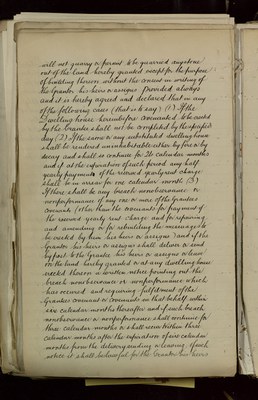 will not quarry or permit to be quarried any stone
out of the land hereby granted except for the purpose
of building thereon without the consent in writing of
the Grantor his heirs or assigns provided always
and it is hereby agreed and declared that in any
of the following cases (that is to say) (1) If the
Dwelling house hereinbefore covenanted to be erected
by the Grantee shall not be completed by the specified
day (2) If the same or any substituted dwelling house
shall be rendered uninhabitable either by fire or by
decay and shall so continue for 26 calendar months
and if at the expiration of such period any half
yearly payment of the reserved yearly rent charge
shall be in arrear for one calendar month (3)
If there shall be any breach nonobservance or
nonperformance of any one or more of the Grantees
covenants (other than the covenants for payment of
the reserved yearly rent charge and for repairing
and amending or for rebuilding the messuage to
be erected by him his heirs or assigns) and if the
Grantor his heirs or assigns shall deliver or send
by post to the Grantee his heirs or assigns or leave
on the land hereby granted or at any dwelling house
erected thereon a written notice pointing out the
breach nonobservance or nonperformance which
has occurred and requiring fulfilment of the
Grantees covenant or covenants in that behalf within
calendar months thereafter and if such breach
nonobservance or nonperformance shall continue for
three calendar months or shall recur within three
calendar months after the expiration of calendar
months from the delivery sending or leaving of such
notice it shall be lawful for the Grantor his heirs